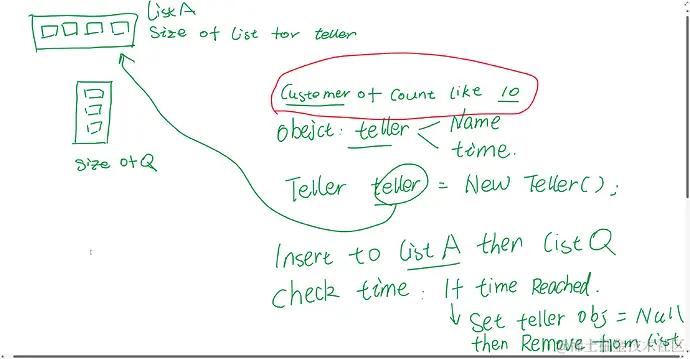 List A
Size of List for teller
Size of Q
Customer of Count like 10
Obejct: teller
Name
time.
Teller teller = New Teller();
Insert to List A then List Q
Check time: If time Reached.
Set teller obj = Null
then Remove from List